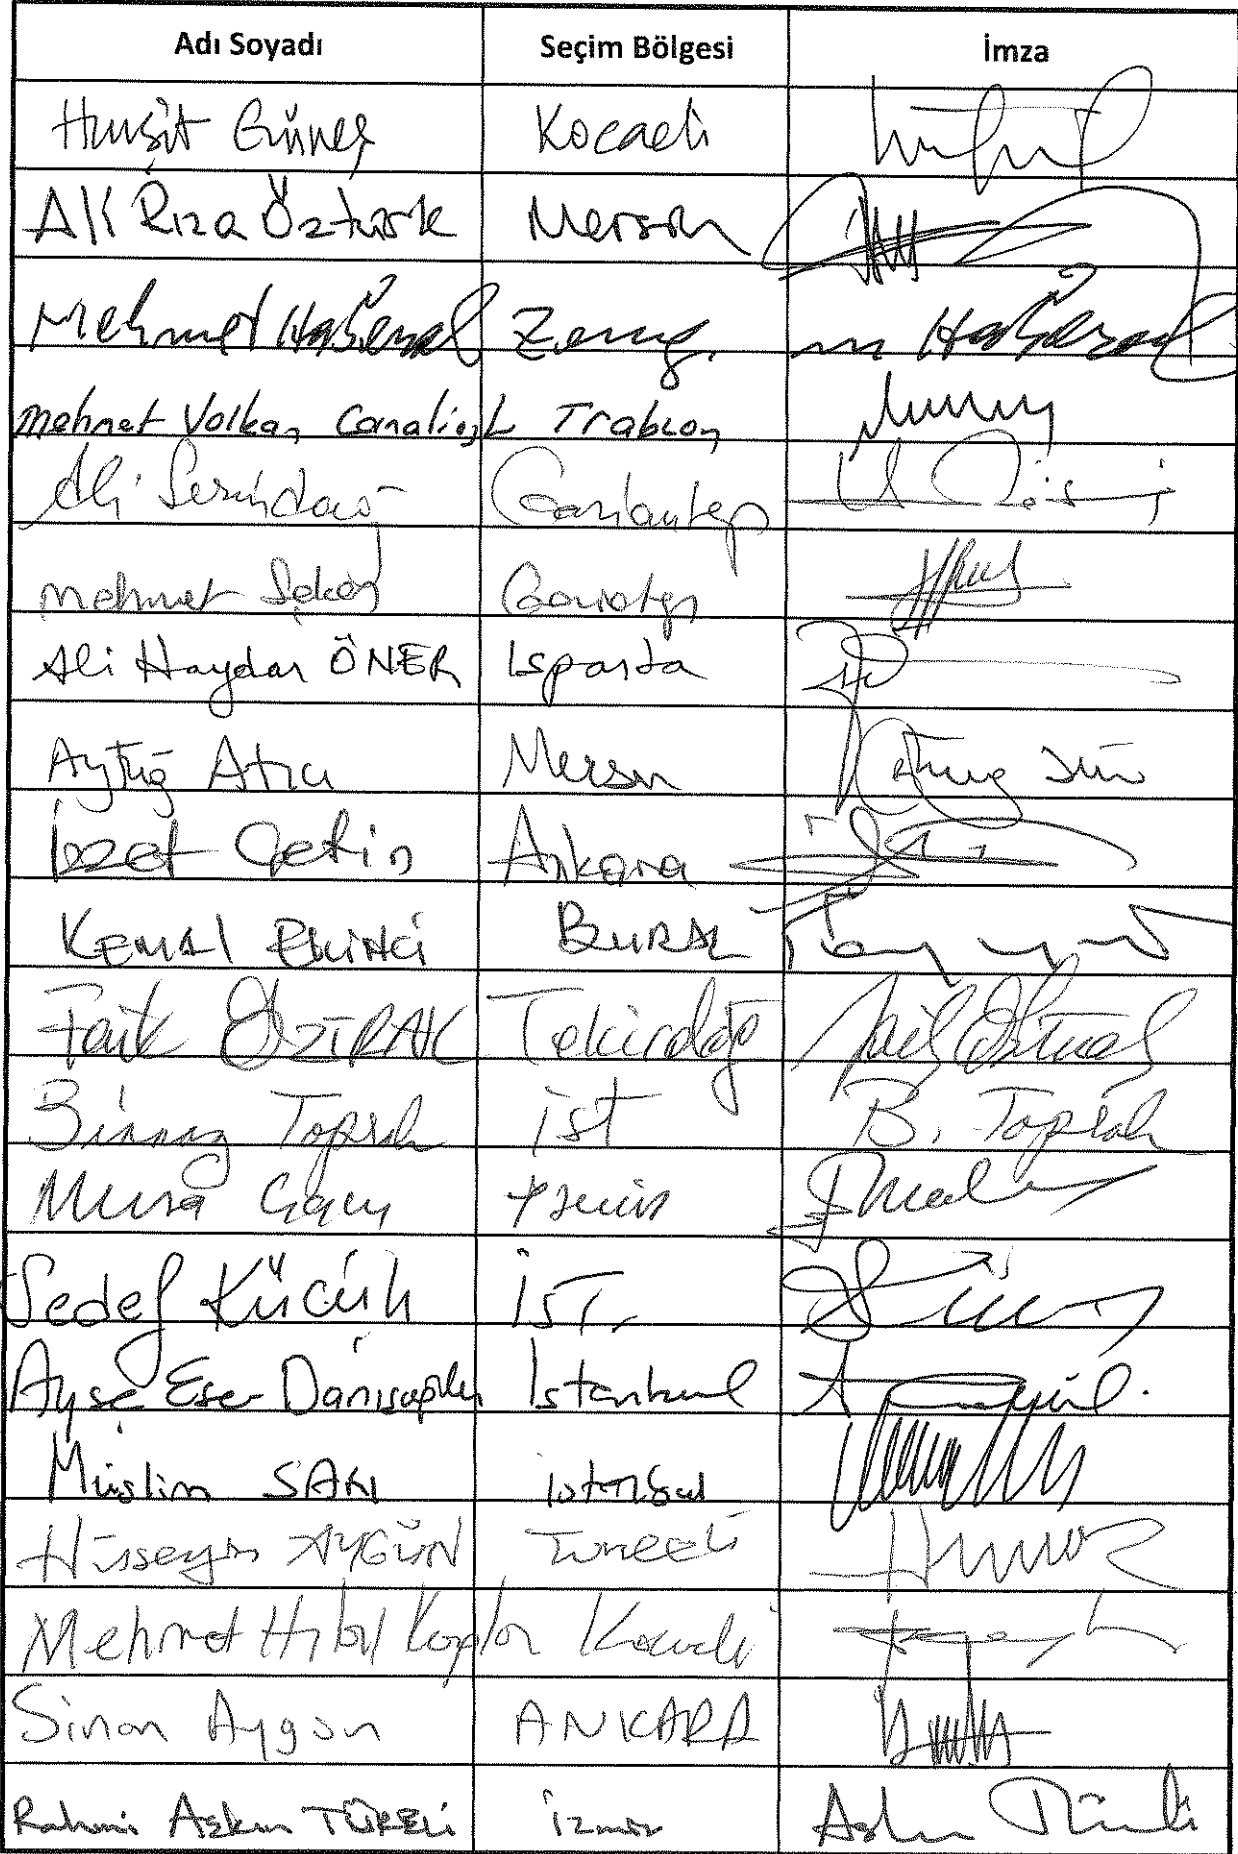 Adı Soyadı Seçim Bölgesi İmza
Hurşit Güneş Kocaeli
Ali Rıza Öztürk Mersin
Mehmet Haberal Zong. m Haberal
Mehmet Volkan Canalioğlu Trabzon
Ali Serindağ Gaziantep
Mehmet Şeker Gaziantep
Ali Haydar ÖNER Isparta
Aytuğ Atıcı Mersin
İzzet Çetin Ankara
KEMAL EKİNCİ BURSA
Faik ÖZTRAK Tekirdağ
Binnaz Toprak İst B. Toprak
Musa Çam İzmir
Sedef Küçük İST.
Ayşe Eser Danışoğlu İstanbul
Müslim SARI istanbul
Hüseyin AYGÜN Tunceli
Mehmet Hilal Kaplan Kocaeli
Sinan Aygün ANKARA
Rahmi Aşkın TÜRELİ İzmir